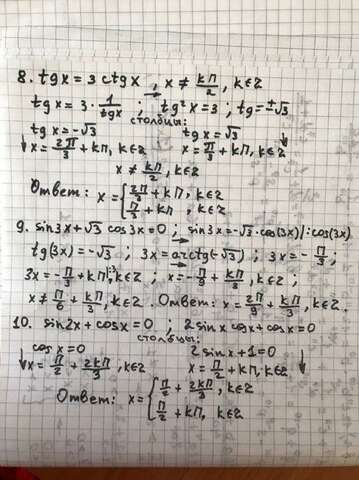 8. tgx = 3 ctgx , x ≠ kπ/2, k∈Z
tgx = 3 · 1/tgx ; tg²x = 3 ; tg = ±√3
столбцы:
tgx = -√3 tgx = √3
↓ x = 2π/3 + kπ, k∈Z x = π/3 + kπ, k∈Z ↓
x ≠ kπ/2, k∈Z
Ответ: x = { 2π/3 + kπ, k∈Z
π/3 + kπ, k∈Z
9. sin3x + √3 cos3x = 0 ; sin3x = -√3 · cos(3x) |: cos(3x)
tg(3x) = -√3 ; 3x = arctg(-√3) ; 3x = -π/3 ;
3x = -π/3 + kπ |:3, k∈Z ; x = -π/9 + kπ/3, k∈Z ;
x ≠ π/6 + kπ/3, k∈Z Ответ: x = 2π/9 + kπ/3, k∈Z.
10. sin2x + cosx = 0 ; 2 sinx cosx + cosx = 0
столбцы:
cosx = 0 2 sinx + 1 = 0
↓ x = π/2 + 2kπ/3, k∈Z x = π/2 + kπ, k∈Z ↓
Ответ: x = { π/2 + 2kπ/3, k∈Z
π/2 + kπ, k∈Z